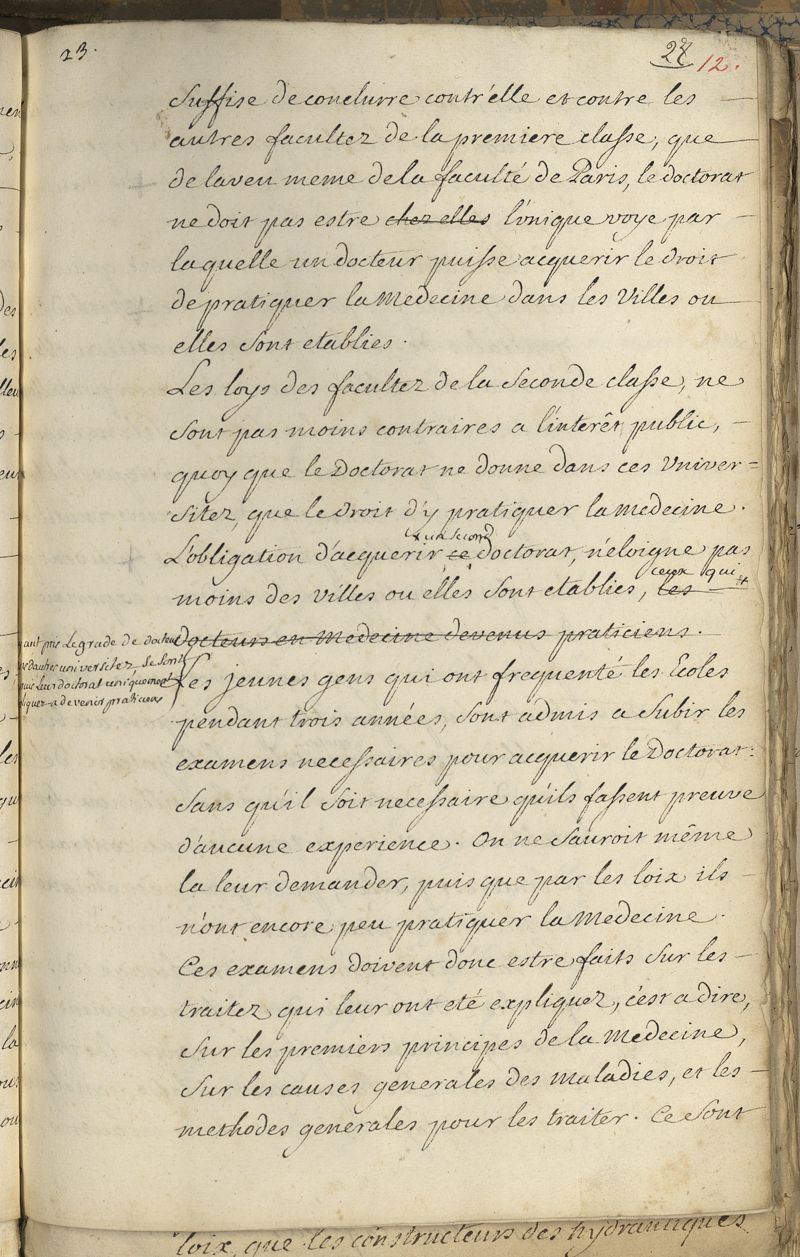 23.
28
12.
Suffise de conclurre contr'elle et contre les
autres facultez de la premiere classe, que
de laveu meme de la faculté de Paris, le doctorat
ne doit pas estre chez elles l'unique voye par
laquelle un docteur puisse acquerir le droit
de pratiquer la Medecine dans les Villes ou
elles sont etablies.
Les loys des facultez de la seconde classe, ne
sont pas moins contraires a l'interêt public,
quoy que le Doctorat ne donne dans ces Univer=
sitez, que le droit d'y pratiquer la medecine.
un second
L'obligation d'acquerir ce doctorat, n'eloigne pas
ceux qui
moins des villes ou elles sont etablies, les
docteurs en Medecine devenus praticiens.
ayant pris le grade de docteur
dautres universitez, se sont
puis leur doctorat uniquement
pliquez a devenir praticiens
Les jeunes gens qui ont frequenté les Ecoles
pendant trois années, sont admis a subir les
examens necessaires pour acquerir le Doctorat:
sans qu'il soit necessaire qu'ils fassent preuve
d'aucune experience. On ne sauroit même
la leur demander, puis que par les loix ils
n'ont encore peu pratiquer la Medecine.
Ces examens doivent donc estre faits sur les
traitez qui leur ont eté expliquez, c'est a dire,
sur les premiers principes de la medecine,
sur les causes generales des maladies, et les
methodes generales pour les traiter. Ce sont
loix, que les constructeurs des hydrauliques